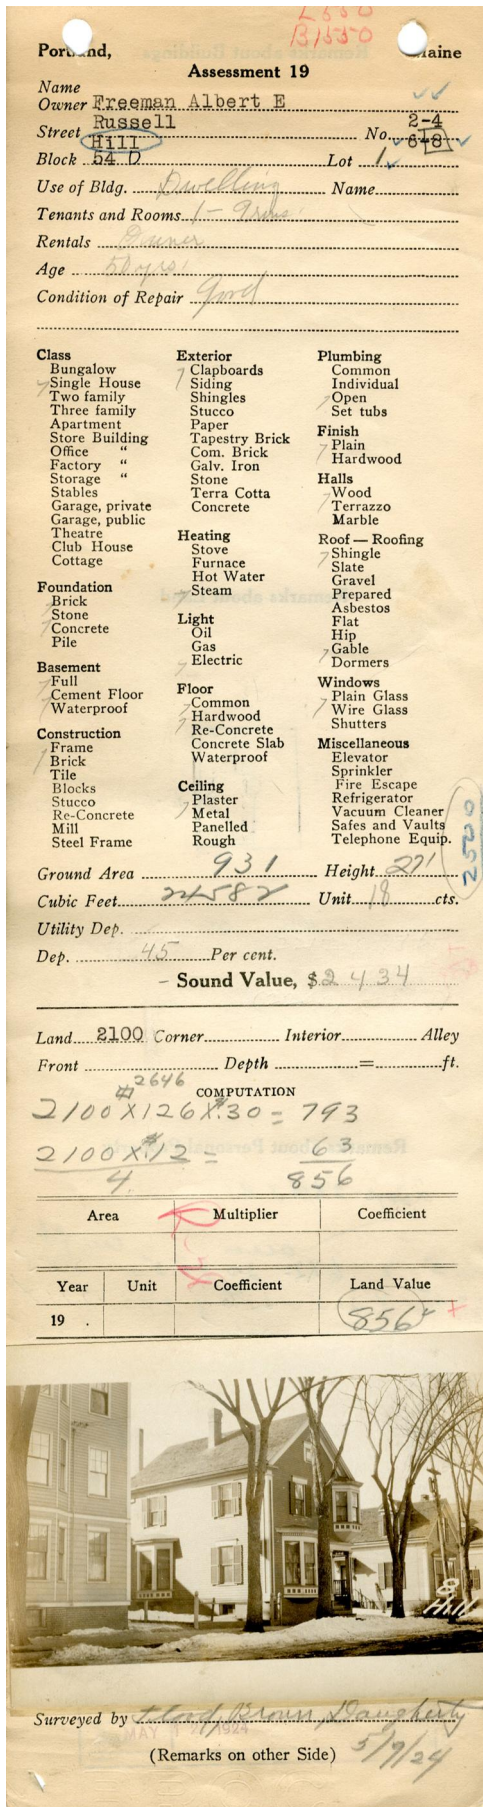 L550
B1550
Portland, Maine
Assessment 19
Name
Owner Freeman Albert E
Russell 2-4
Street Hill No. 6-8
Block 54 D Lot 1
Use of Bldg. Dwelling Name
Tenants and Rooms 1 - 9 rms.
Rentals Owner
Age 50 yrs.
Condition of Repair Good
Class
Bungalow
Single House
Two family
Three family
Apartment
Store Building
Office "
Factory "
Storage "
Stables
Garage, private
Garage, public
Theatre
Club House
Cottage
Foundation
Brick
Stone
Concrete
Pile
Basement
Full
Cement Floor
Waterproof
Construction
Frame
Brick
Tile
Blocks
Stucco
Re-Concrete
Mill
Steel Frame
Exterior
Clapboards
Siding
Shingles
Stucco
Paper
Tapestry Brick
Com. Brick
Galv. Iron
Stone
Terra Cotta
Concrete
Heating
Stove
Furnace
Hot Water
Steam
Light
Oil
Gas
Electric
Floor
Common
Hardwood
Re-Concrete
Concrete Slab
Waterproof
Ceiling
Plaster
Metal
Panelled
Rough
Plumbing
Common
Individual
Open
Set tubs
Finish
Plain
Hardwood
Halls
Wood
Terrazzo
Marble
Roof — Roofing
Shingle
Slate
Gravel
Prepared
Asbestos
Flat
Hip
Gable
Dormers
Windows
Plain Glass
Wire Glass
Shutters
Miscellaneous
Elevator
Sprinkler
Fire Escape
Refrigerator
Vacuum Cleaner
Safes and Vaults
Telephone Equip.
2500
Ground Area 931 Height 27'
Cubic Feet 24582 Unit 18 cts.
Utility Dep.
Dep. 45 Per cent.
Sound Value, $2434
Land 2100 Corner Interior Alley
Front Depth = ft.
2646
COMPUTATION
2100 X 126 X $.30 = 793
2100 X $.12 = 63
4 856
Area Multiplier Coefficient
Year Unit Coefficient Land Value
19 . 856
8
Hill
Surveyed by Brown, Daugherty
MAY 1924
(Remarks on other Side) 5/9/24